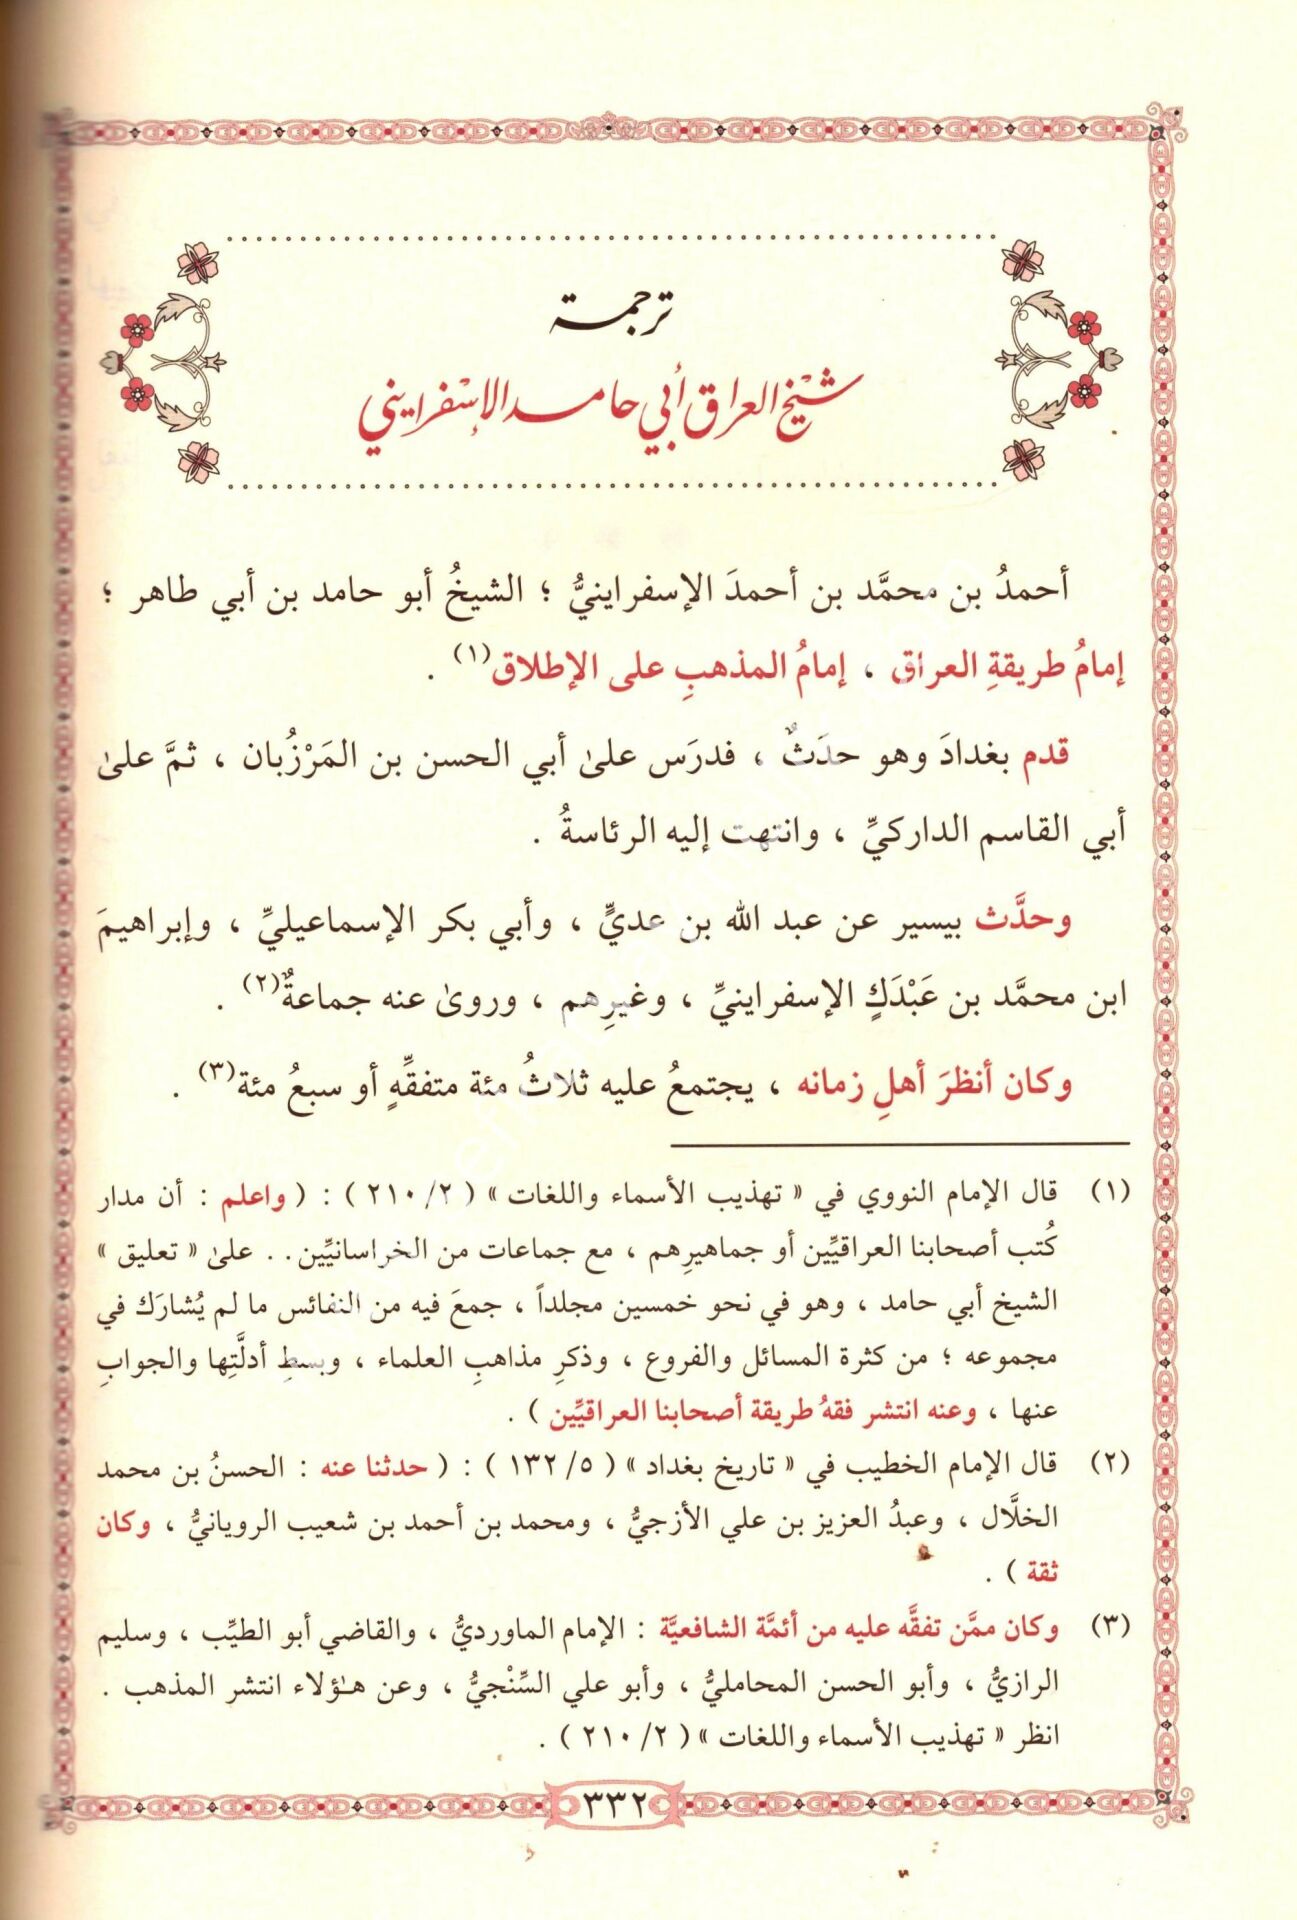 ترجمة
شيخ العراق أبي حامد الإسفرايني
أحمدُ بن محمَّد بن أحمدَ الإسفراينيُّ ؛ الشيخُ أبو حامد بن أبي طاهر ؛
إمامُ طريقةِ العراق ، إمامُ المذهبِ على الإطلاق(١) .
قدم بغدادَ وهو حدَثٌ ، فدرَس علىٰ أبي الحسن بن المَرْزُبان ، ثمَّ علىٰ
أبي القاسم الداركيِّ ، وانتهت إليه الرئاسةُ .
وحدَّث بيسير عن عبد الله بن عديٍّ ، وأبي بكر الإسماعيليِّ ، وإبراهيمَ
ابن محمَّد بن عَبْدَكٍ الإسفراينيِّ ، وغيرِهم ، وروىٰ عنه جماعةٌ(٢) .
وكان أنظرَ أهلِ زمانه ، يجتمعُ عليه ثلاثُ مئة متفقِّهٍ أو سبعُ مئة(٣) .
(١) قال الإمام النووي في « تهذيب الأسماء واللغات » ( ٢/ ٢١٠ ) : ( واعلم : أن مدار
كُتب أصحابنا العراقيِّين أو جماهيرِهم ، مع جماعات من الخراسانيِّين . . علىٰ « تعليق »
الشيخ أبي حامد ، وهو في نحو خمسين مجلداً ، جمعَ فيه من النفائس ما لم يُشارَك في
مجموعه ؛ من كثرة المسائل والفروع ، وذكرِ مذاهبِ العلماء ، وبسطِ أدلَّتِها والجوابِ
عنها ، وعنه انتشر فقهُ طريقة أصحابنا العراقيِّين ) .
(٢) قال الإمام الخطيب في « تاريخ بغداد » ( ٥/ ١٣٢ ) : ( حدثنا عنه : الحسنُ بن محمد
الخلَّال ، وعبدُ العزيز بن علي الأزجيُّ ، ومحمد بن أحمد بن شعيب الرويانيُّ ، وكان
ثقة ) .
(٣) وكان ممَّن تفقَّه عليه من أئمَّة الشافعيَّة : الإمام الماورديُّ ، والقاضي أبو الطيِّب ، وسليم
الرازيُّ ، وأبو الحسن المحامليُّ ، وأبو علي السِّنْجيُّ ، وعن هـٰؤلاء انتشر المذهب .
انظر « تهذيب الأسماء واللغات » ( ٢/ ٢١٠ ) .
٣٣٢